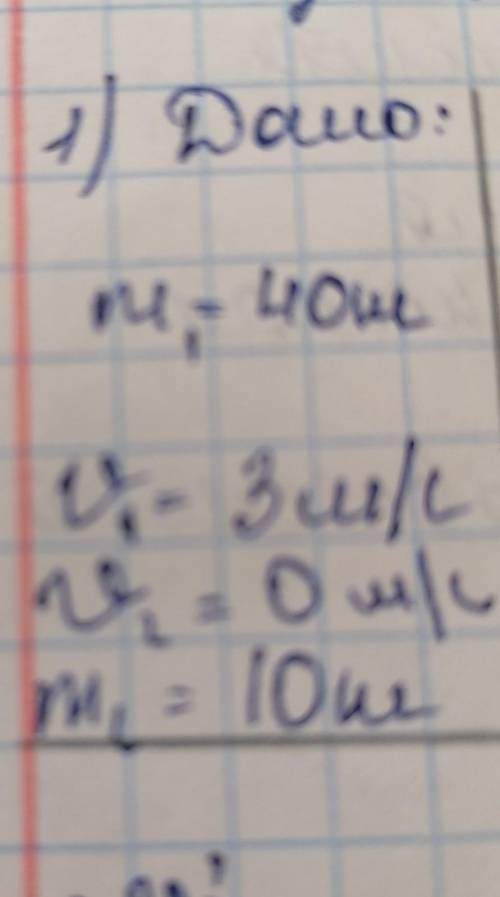 1) Дано:
m₁ = 40 кг
v₁ = 3 м/с
v₂ = 0 м/с
m₂ = 10 кг